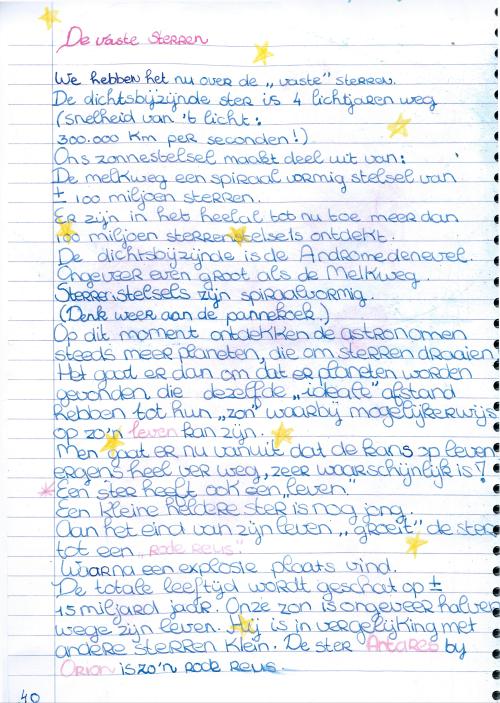 De vaste Sterren
We hebben het nu over de „vaste" sterren.
De dichtsbijzijnde ster is 4 lichtjaren weg
(snelheid van 't licht:
300.000 km per seconden!)
Ons zonnestelsel maakt deel uit van:
De melkweg een spiraal vormig stelsel van
± 100 miljoen sterren.
Er zijn in het heelal tot nu toe meer dan
100 miljoen sterrenstelsels ontdekt.
De dichtsbijzijnde is de Andromedenevel.
Ongeveer even groot als de Melkweg.
Sterrenstelsels zijn spiraalvormig.
(Denk weer aan de pannekoek.)
Op dit moment ontdekken de astronomen
steeds meer planeten, die om sterren draaien
Het gaat er dan om dat er planeten worden
gevonden die dezelfde „ideale" afstand
hebben tot hun „zon" waarbij mogelijkerwijs
op zo'n leven kan zijn.
Men gaat er nu vanuit dat de kans op leven
ergens heel ver weg, zeer waarschijnlijk is!
* Een ster heeft ook een „leven"
Een kleine heldere ster is nog jong.
Aan het eind van zijn leven „groeit" de ster
tot een „rode reus".
Waarna een explosie plaats vind.
De totale leeftijd wordt geschat op ±
15 miljard jaar. Onze zon is ongeveer halver
wege zijn leven. Hij is in vergelijking met
andere sterren klein. De ster Antares by
Orion is zo'n rode reus.
40